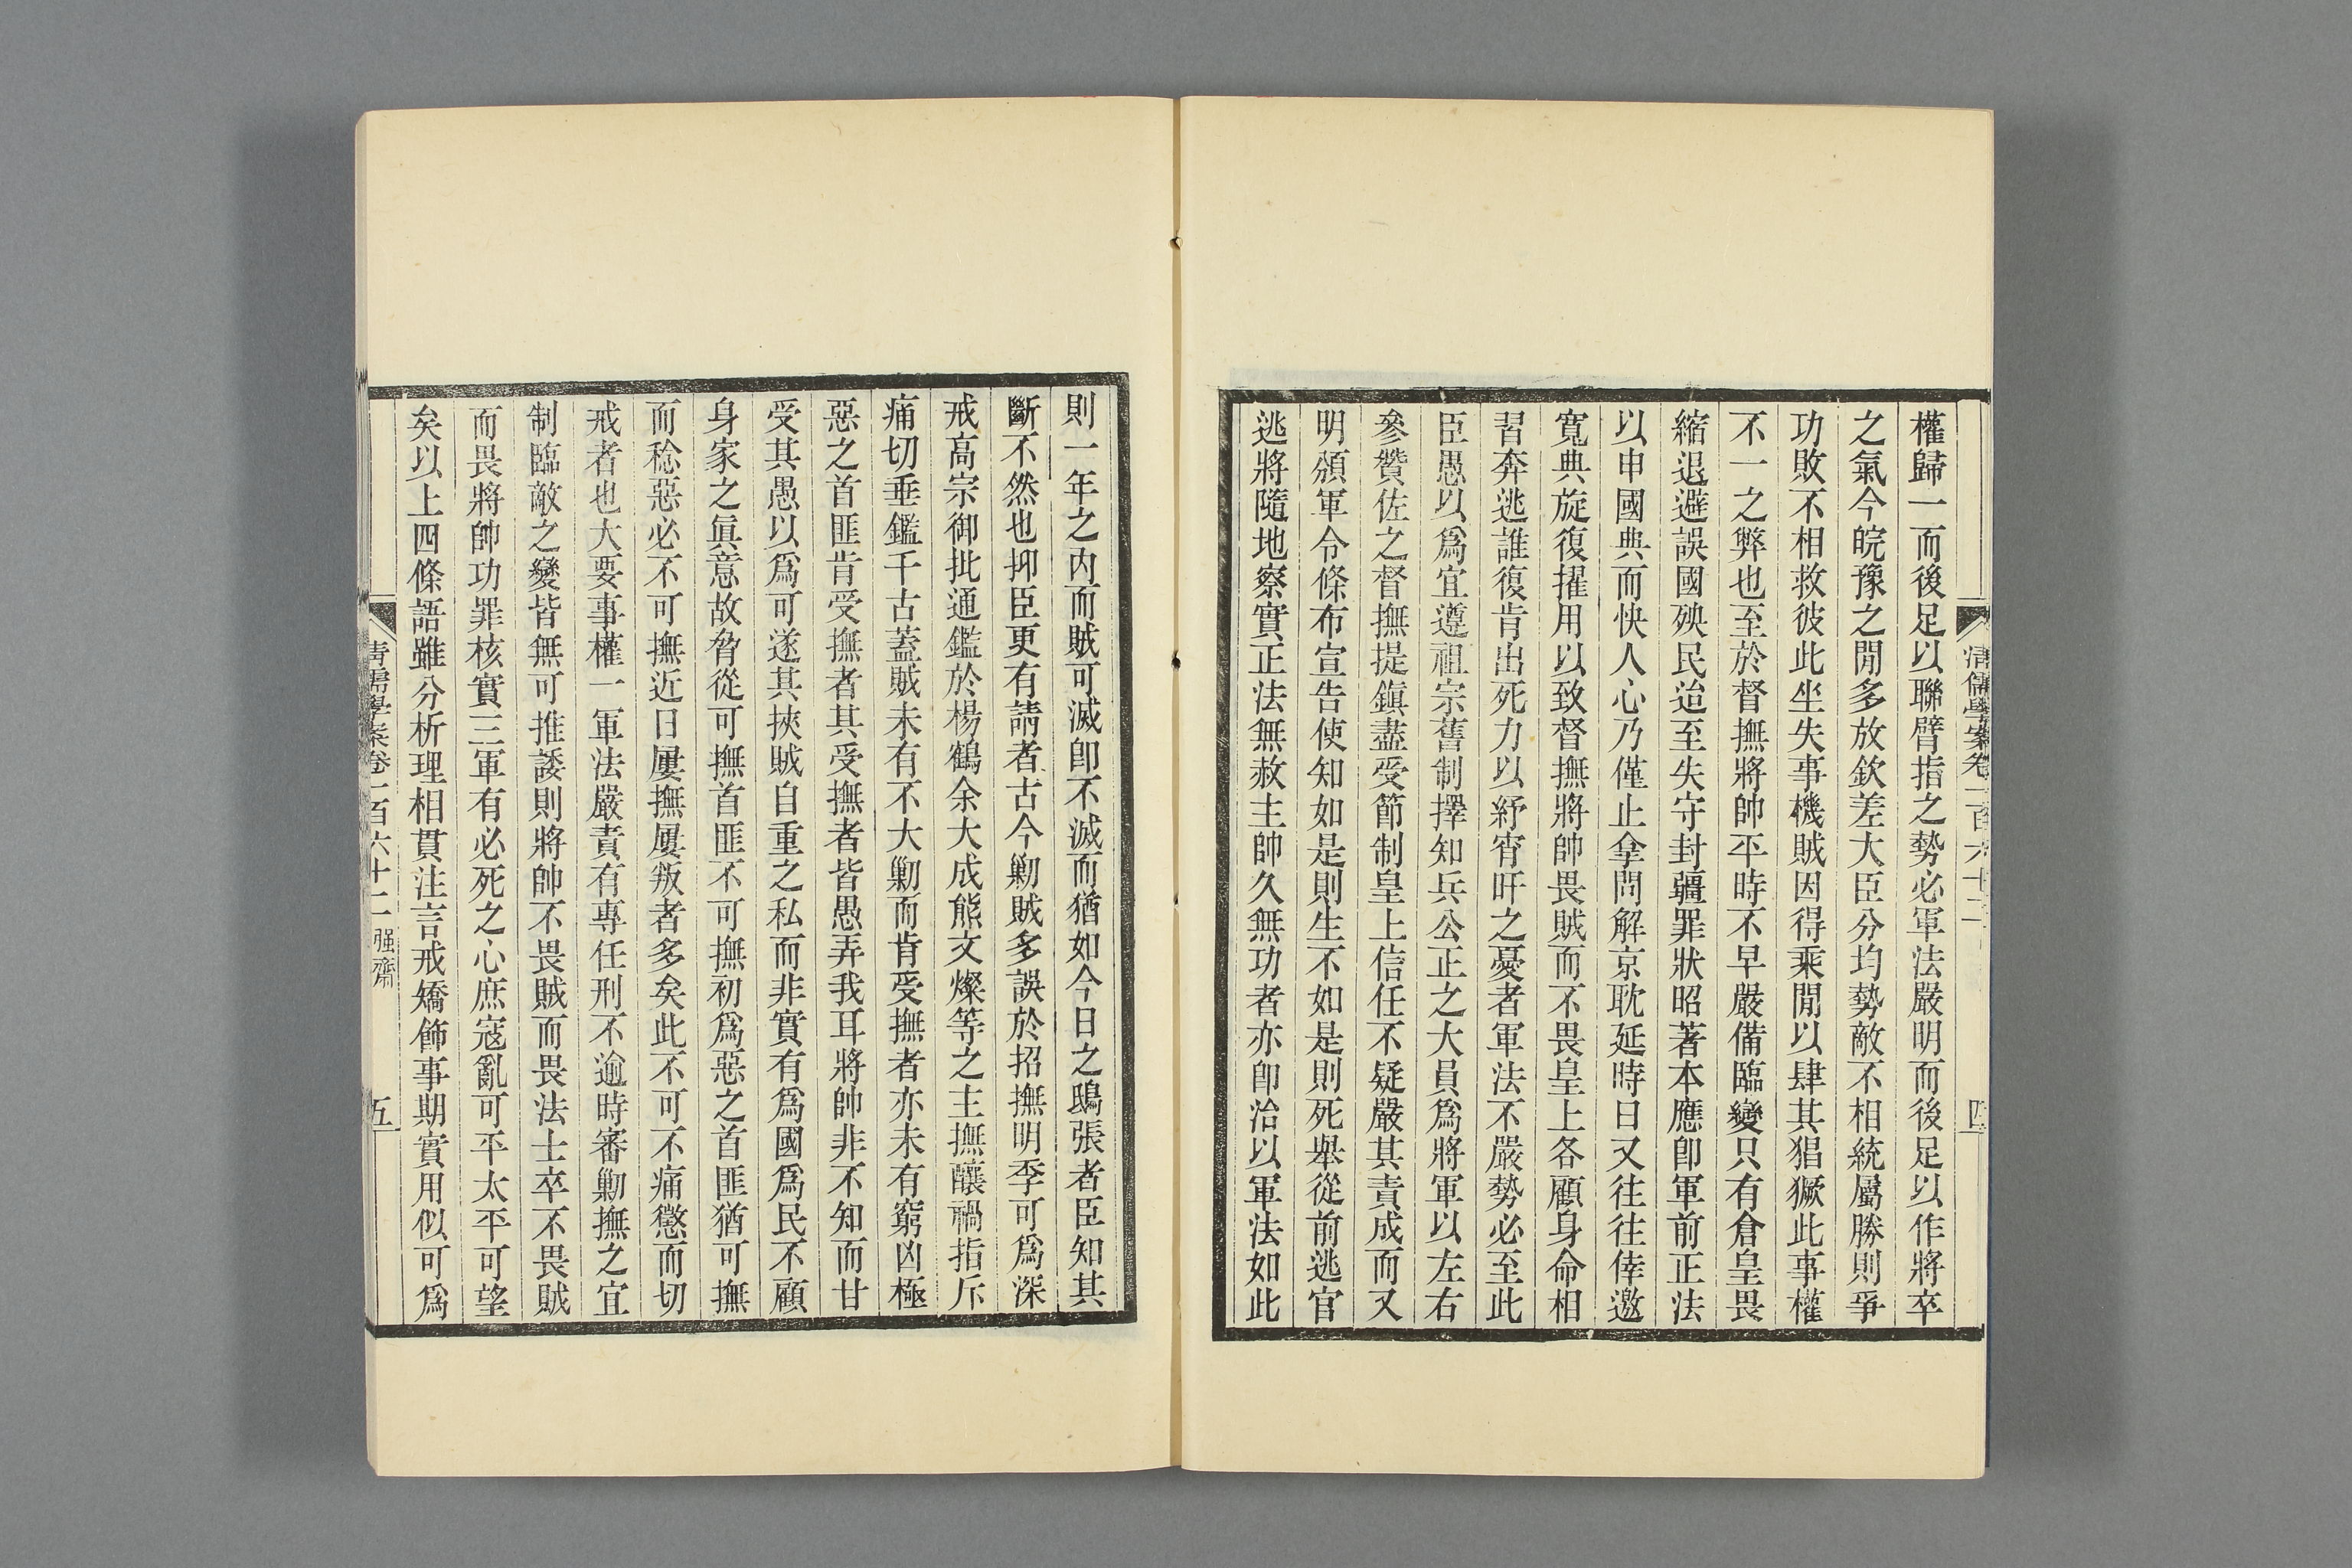 權歸一而後足以聯臂指之勢必軍法嚴明而後足以作將卒
之氣今皖豫之閒多放欽差大臣分均勢敵不相統屬勝則爭
功敗不相救彼此坐失事機賊因得乘閒以肆其猖獗此事權
不一之弊也至於督撫將帥平時不早嚴備臨變只有倉皇畏
縮退避誤國殃民迨至失守封疆罪狀昭著本應卽軍前正法
以申國典而快人心乃僅止拿問解京耽延時日又往往倖邀
寬典旋復擢用以致督撫將帥畏賊而不畏皇上各顧身命相
習奔逃誰復肯出死力以紓宵旰之憂者軍法不嚴勢必至此
臣愚以爲宜遵祖宗舊制擇知兵公正之大員爲將軍以左右
參贊佐之督撫提鎭盡受節制皇上信任不疑嚴其責成而又
明頒軍令條布宣告使知如是則生不如是則死舉從前逃官
逃將隨地察實正法無赦主帥久無功者亦卽治以軍法如此
清儒學案卷一百六十二
四
則一年之內而賊可滅卽不滅而猶如今日之鴟張者臣知其
斷不然也抑臣更有請者古今勦賊多誤於招撫明季可爲深
戒高宗御批通鑑於楊鶴余大成熊文燦等之主撫釀禍指斥
痛切垂鑑千古蓋賊未有不大勦而肯受撫者亦未有窮凶極
惡之首匪肯受撫者其受撫者皆愚弄我耳將帥非不知而甘
受其愚以爲可遂其挾賊自重之私而非實有爲國爲民不顧
身家之眞意故脅從可撫首匪不可撫初爲惡之首匪猶可撫
而稔惡必不可撫近日屢撫屢叛者多矣此不可不痛懲而切
戒者也大要事權一軍法嚴責有專任刑不逾時審勦撫之宜
制臨敵之變皆無可推諉則將帥不畏賊而畏法士卒不畏賊
而畏將帥功罪核實三軍有必死之心庶寇亂可平太平可望
矣以上四條語雖分析理相貫注言戒矯飾事期實用似可爲
清儒學案卷一百六十二 强齋
五